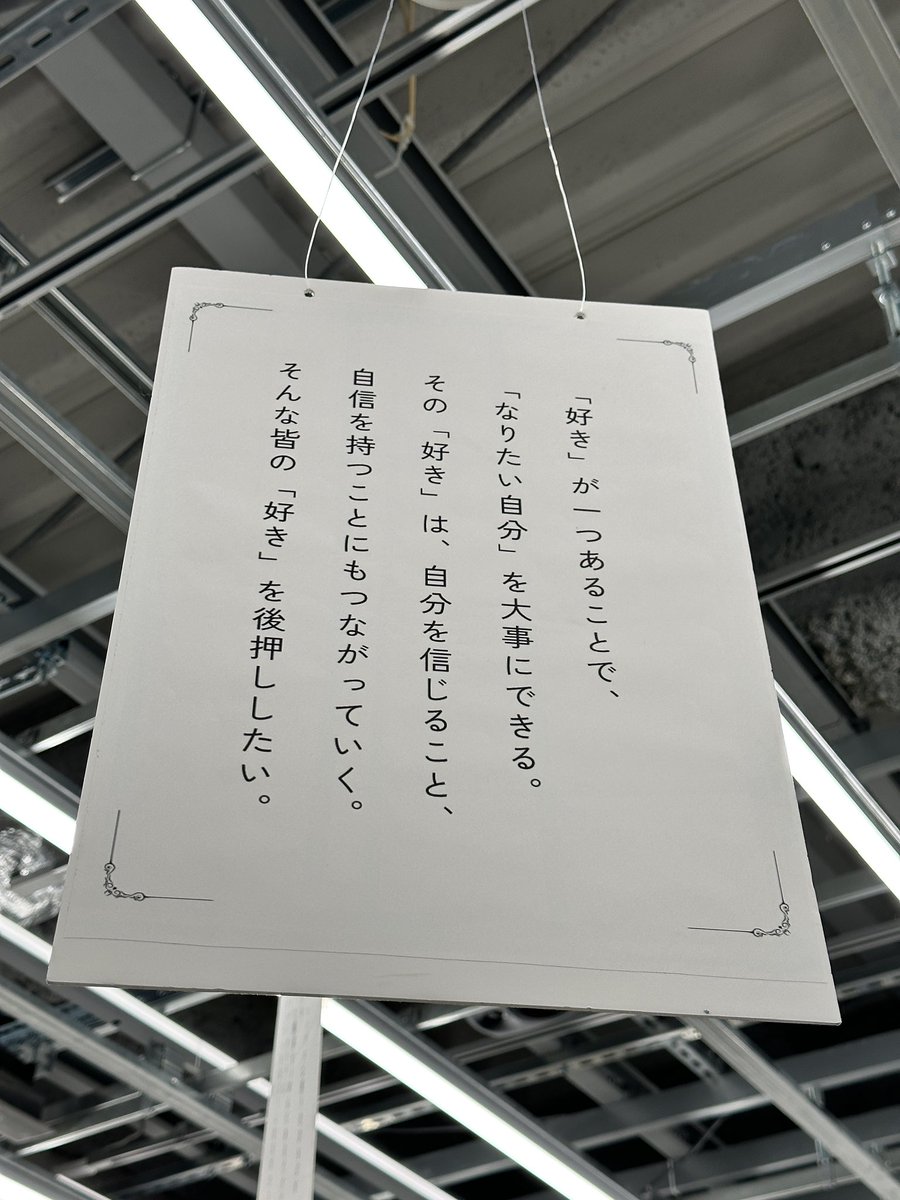 「好き」が一つあることで、
「なりたい自分」を大事にできる。
その「好き」は、自分を信じること、
自信を持つことにもつながっていく。
そんな皆の「好き」を後押ししたい。